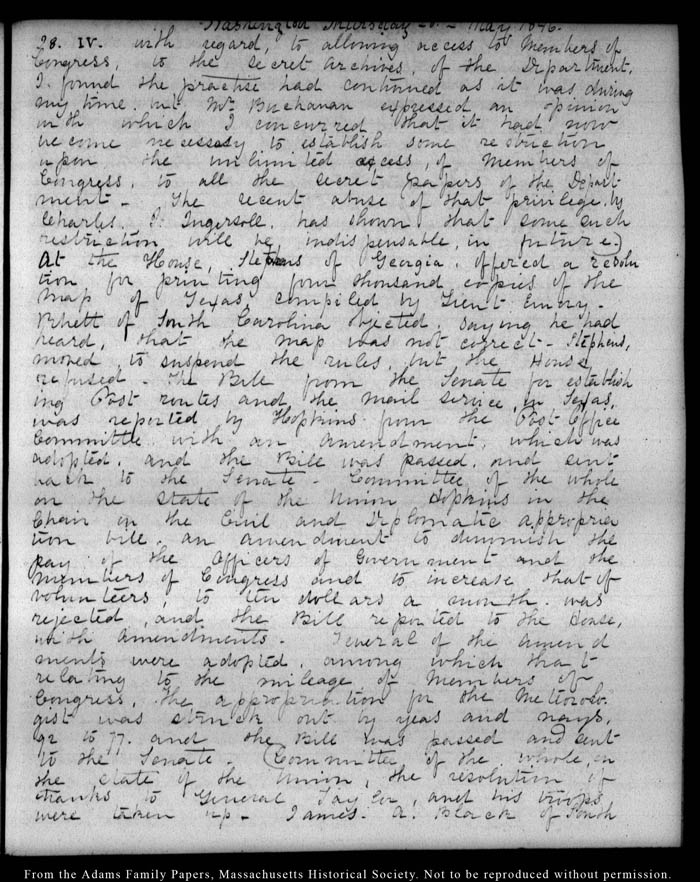 Washington Thursday - - May 1846.
28. IV. with regard, to allowing access to Members of
Congress, to the secret archives, of the Department,
I found the practise had continued as it was during
my time. but Mr Buchanan expressed an opinion
in which I concurred that it had now
become necessary to establish some restriction
upon the unlimited access, of Members of
Congress, to all the secret papers of the Depart
ment - The recent abuse of that privilege, by
Charles J. Ingersoll, has shown that some such
restriction will be indispensable, in future.)
At the House, Stephens of Georgia, offered a resolu
tion for printing four thousand copies of the
map of Texas, compiled by Lieut Emory -
Rhett of South Carolina objected, saying he had
heard, that the map was not correct - Stephens,
moved to suspend the rules, but the House
refused - The Bill from the Senate for establish
ing Post routes and the mail service, in Texas,
was reported by Hopkins from the Post Office
Committee with an amendment, which was
adopted, and the Bill was passed, and sent
back to the Senate - Committee of the whole
on the state of the Union Hopkins in the
Chair on the Civil and Diplomatic appropria
tion bill, an amendment to diminish the
pay of the Officers of Government and the
Members of Congress and to increase that of
volunteers, to ten dollars a month was
rejected, and the Bill reported to the House,
with amendments - Several of the amend
ments were adopted, among which that
relating to the mileage of Members of
Congress, The appropriation for the Meteorolo
gist was struck out by yeas and nays,
92 to 77. and the Bill was passed and sent
to the Senate - Committee of the whole, on
the state of the Union, the resolution of
thanks to General Taylor, and his troops
were taken up - James A. Black of South
From the Adams Family Papers, Massachusetts Historical Society. Not to be reproduced without permission.